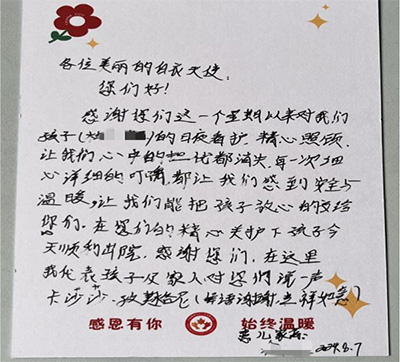 各位美丽的白衣天使：
您们好！
感谢您们这一个星期以来对我们
孩子( )的日夜看护，精心照顾，
让我们心中的担忧都消失，每一次细
心详细的叮嘱都让我们感到安全与
温暖，让我们能把孩子放心的交给
您们。在您们的精心关护下孩子今
天顺利出院，感谢您们，在这里
我代表孩子及家人对您们说一声
卡莎莎，孜莫格尼(彝语谢谢，吉祥如意)
感恩有你 始终温暖
患儿家属:
8.7